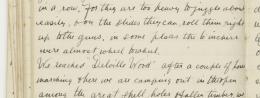 in a row, for they are too heavy to juggle about
easily, & on the slides they can roll them right
up to the guns, in some places the 6 inchers
were almost wheel to wheel.
We reached "Delville Wood" after a couple of hours
marching & here we are camping out in the open
among the great shell holes & fallen timber we